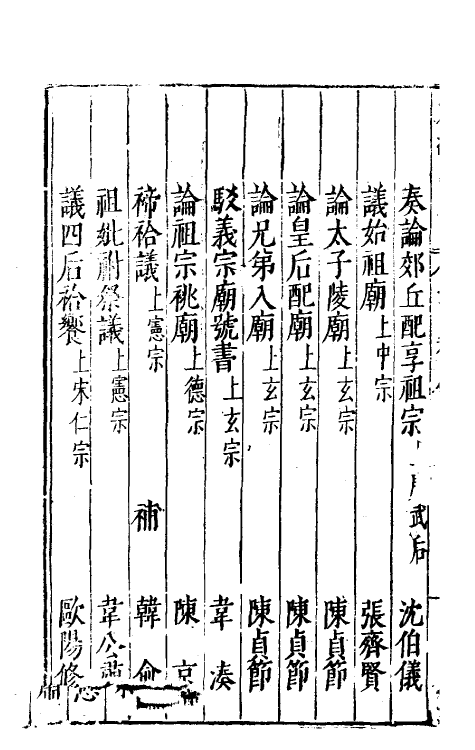 奏論郊丘配享祖宗 武后 沈伯儀
議始祖廟 上中宗 張齊賢
論太子陵廟 上玄宗 陳貞節
論皇后配廟 上玄宗 陳貞節
論兄弟入廟 上玄宗 陳貞節
駁義宗廟號書 上玄宗 韋湊
論祖宗祧廟 上德宗 陳京
禘祫議 上憲宗 補 韓俞
祖紕祔祭議 上憲宗 韋公肅
議四后祫饗 上宋仁宗 歐陽修